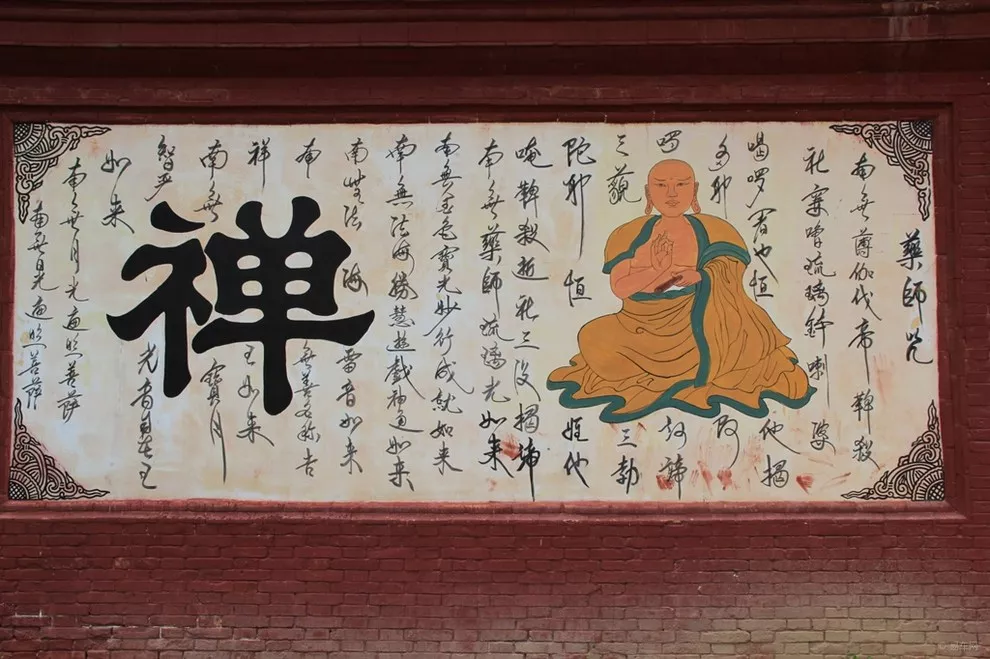 藥師咒
南無薄伽伐帝鞞殺
社窶嚕琉璃鉢喇婆
喝囉闍也怛他揭
多耶阿
囉訶諦
三藐三勃
陀耶怛姪他
唵鞞殺逝社三没揭諦
南無藥師琉璃光如来
南無金色寶光妙行成就如来
南無法海勝慧遊戲神通如来
南無法海雷音如来
南無善名称吉
祥王如来
南無寶月
智严光音自在王
如来
南無月光遍照菩薩
南無日光遍照菩薩
禪